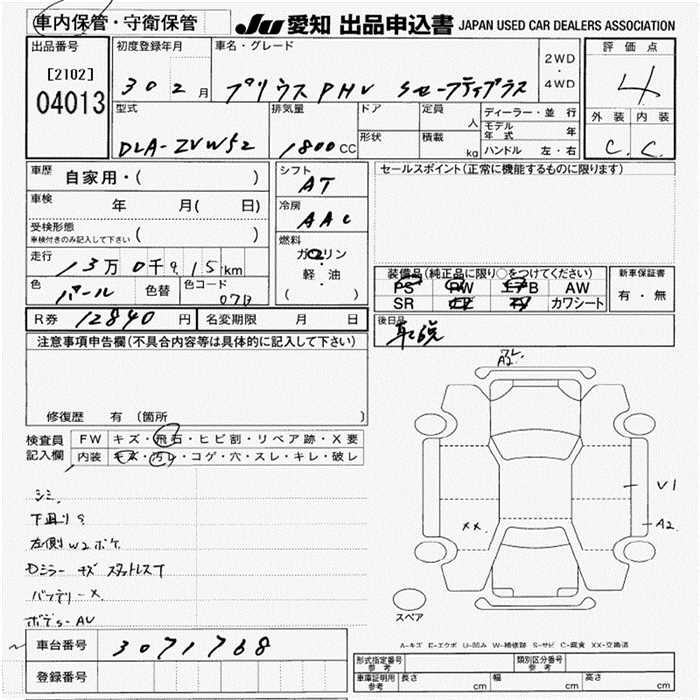 車内保管・守衛保管
JU 愛知 出品申込書 JAPAN USED CAR DEALERS ASSOCIATION
出品番号
[2102]
04013
初度登録年月
30 2月
車名・グレード
プリウスPHV Sセーフティプラス
2WD
・
4WD
評価点
4
外装 内装
C. C.
型式
DLA-ZVW52
排気量
1800CC
ドア
形状
定員
人
積載
kg
ディーラー・並行
モデル年式 年
ハンドル 左・右
車歴 自家用・( )
車検 年 月( 日)
受検形態
車検付きのみ記入して下さい ( )
走行 13万0千9.15km
色 パール 色替 色コード 070
シフト
AT
冷房
AAC
燃料
ガソリン
・
軽・油
( )
セールスポイント(正常に機能するものに限ります)
装備品(純正品に限り○をつけてください)
PS PW エアB AW
SR カワシート
新車保証書
有・無
R券 12840 円 名変期限 月 日
後日品
注意事項申告欄(不具合内容等は具体的に記入して下さい)
修復歴 有 (箇所 )
検査員
記入欄
FW キズ・飛石・ヒビ割・リペア跡・X要
内装 キズ・汚レ・コゲ・穴・スレ・キレ・破レ
シミ
下廻りS
左側W2ボケ
Dミラーキズ スタットレスT
バッテリーX
ボデーAU
A2
V1
A2
XX.
スペア
A-キズ E-エクボ U-凹み W-補修跡 S-サビ C-腐食 XX-交換済
車台番号 3071768
登録番号
形式指定番号
参考
類別区分番号
参考
車庫証明用
参考
長さ cm 幅 cm 高さ cm